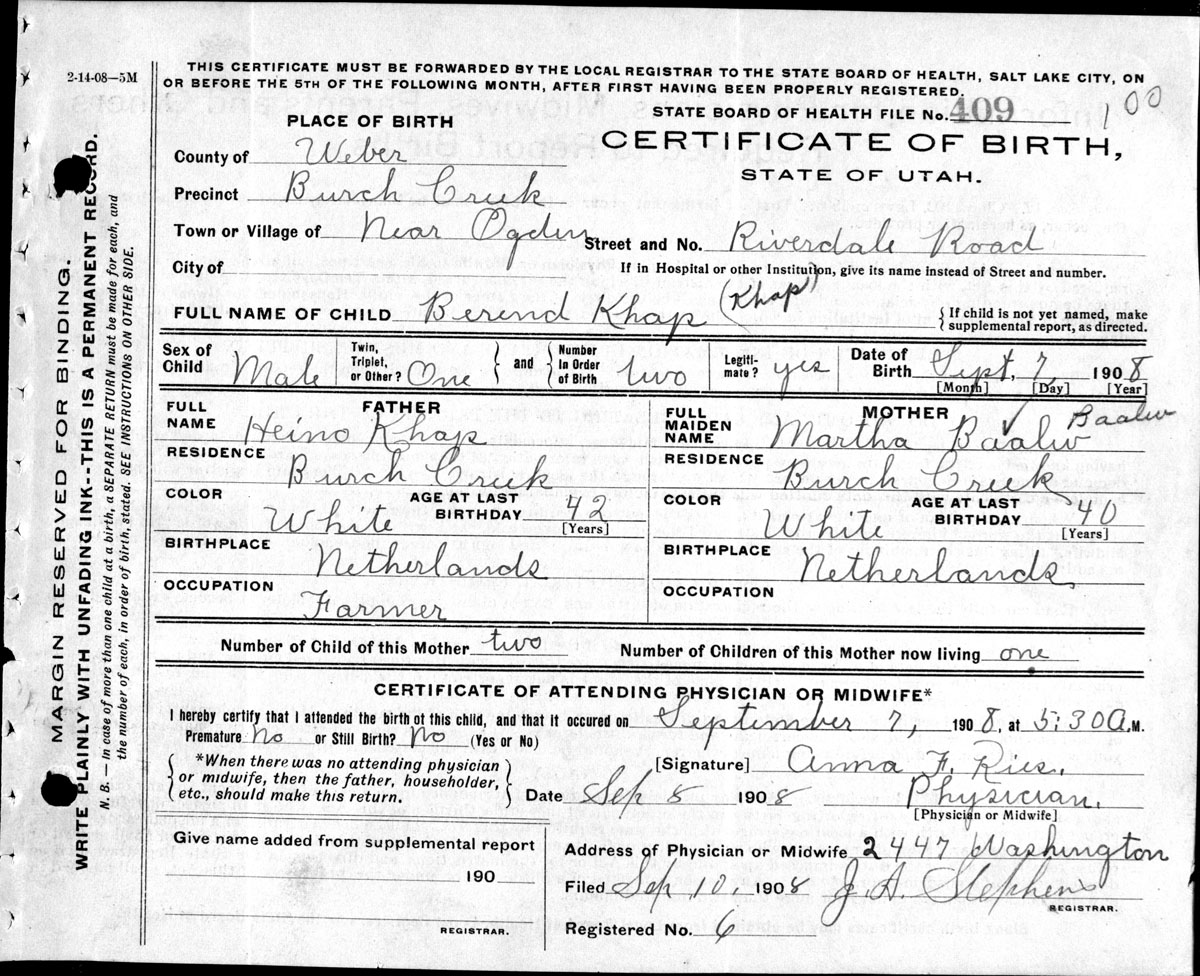 2-14-08—5M
THIS CERTIFICATE MUST BE FORWARDED BY THE LOCAL REGISTRAR TO THE STATE BOARD OF HEALTH, SALT LAKE CITY, ON
OR BEFORE THE 5TH OF THE FOLLOWING MONTH, AFTER FIRST HAVING BEEN PROPERLY REGISTERED.
STATE BOARD OF HEALTH FILE No. 409 100
PLACE OF BIRTH
CERTIFICATE OF BIRTH,
STATE OF UTAH.
County of Weber
Precinct Burch Creek
Town or Village of Near Ogden Street and No. Riverdale Road
City of If in Hospital or other Institution, give its name instead of Street and number.
FULL NAME OF CHILD Berend Khap (Khap) {If child is not yet named, make supplemental report, as directed.
Sex of Child Male Twin, Triplet, or Other? One } and { Number In Order of Birth two Legitimate? yes Date of Birth Sept. 7, 1908
[Month] [Day] [Year]
FATHER MOTHER
FULL NAME Heino Khap FULL MAIDEN NAME Martha Baalw Baalw
RESIDENCE Burch Creek RESIDENCE Burch Creek
COLOR White AGE AT LAST BIRTHDAY 42 [Years] COLOR White AGE AT LAST BIRTHDAY 40 [Years]
BIRTHPLACE Netherlands BIRTHPLACE Netherlands
OCCUPATION Farmer OCCUPATION
Number of Child of this Mother two Number of Children of this Mother now living one
CERTIFICATE OF ATTENDING PHYSICIAN OR MIDWIFE*
I hereby certify that I attended the birth of this child, and that it occured on September 7, 1908, at 5:30 A.M.
Premature No or Still Birth? No (Yes or No)
{*When there was no attending physician or midwife, then the father, householder, etc., should make this return.}
[Signature] Anna F. Ries.
Date Sep 8 1908 Physician.
[Physician or Midwife]
Give name added from supplemental report
190
REGISTRAR.
Address of Physician or Midwife 2447 Washington
Filed Sep 10, 1908 J. A. Stephens
REGISTRAR.
Registered No. 6
MARGIN RESERVED FOR BINDING.
WRITE PLAINLY WITH UNFADING INK--THIS IS A PERMANENT RECORD.
N. B. — In case of more than one child at a birth, a SEPARATE RETURN must be made for each, and
the number of each, in order of birth, stated. SEE INSTRUCTIONS ON OTHER SIDE.